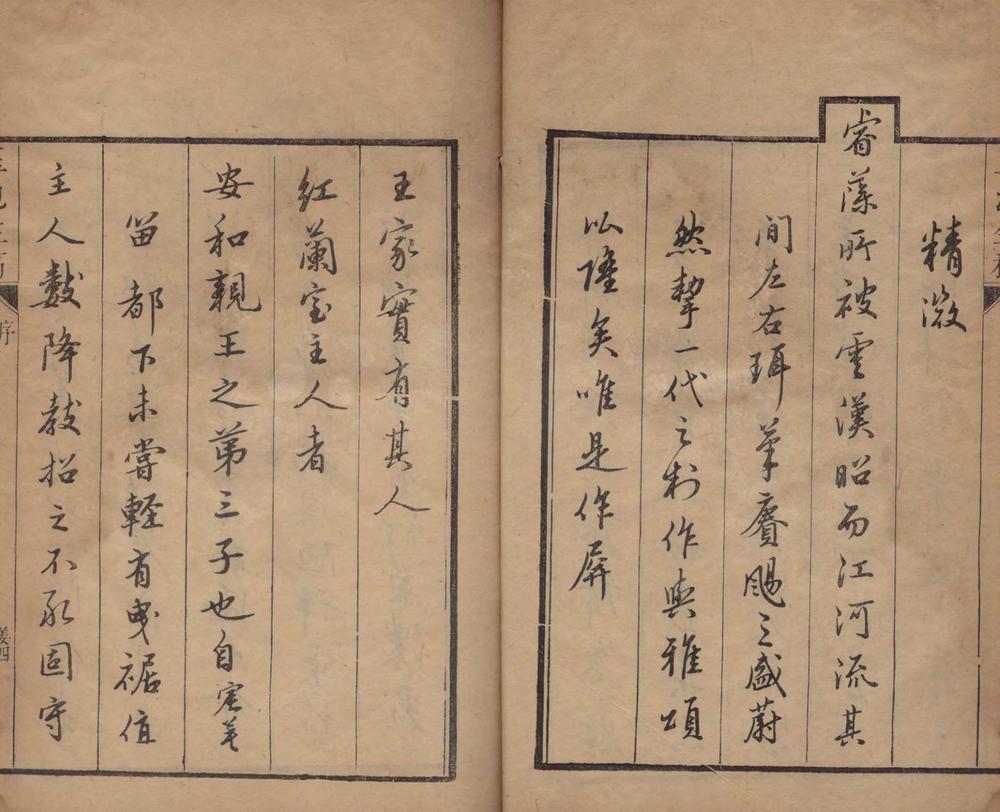 精微
睿藻所被雲漢昭而江河流其
間左右珥筆賡颺之盛蔚
然一代之制作與雅頌
比隆矣唯是作屏
王家實有其人
紅蘭室主人者
安和親王之第三子也自
留都下未嘗輕有曳裾值
主人數降教招之不固守
序